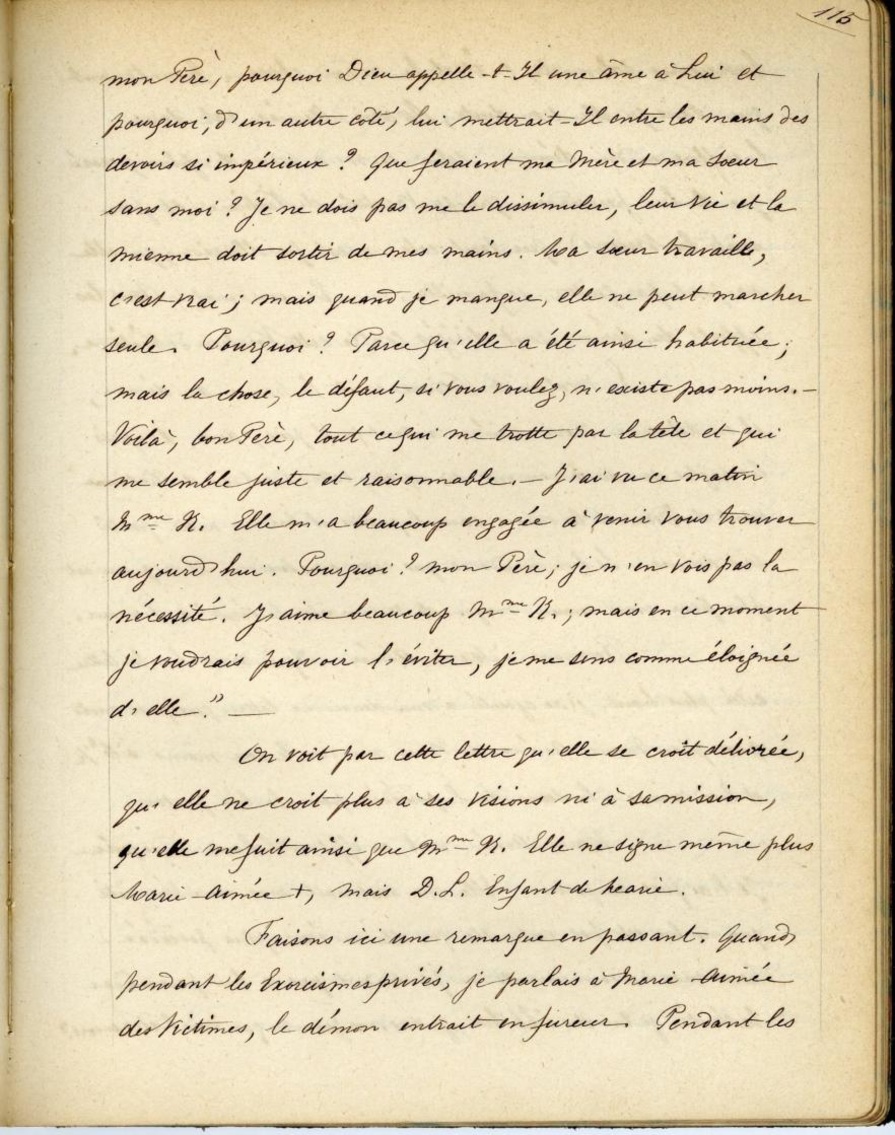 115
mon Père, pourquoi Dieu appelle-t-Il une âme à Lui et
pourquoi, d'un autre côté, lui mettrait-Il entre les mains des
devoirs si impérieux ? Que feraient ma Mère et ma Sœur
sans moi ? Je ne dois pas me le dissimuler, leur vie et la
mienne doit sortir de mes mains. Ma sœur travaille,
c'est vrai ; mais quand je manque, elle ne peut marcher
seule. Pourquoi ? Parce qu'elle a été ainsi habituée ;
mais la chose, le défaut, si vous voulez, n'existe pas moins. —
Voilà, bon Père, tout ce qui me trotte par la tête et qui
me semble juste et raisonnable. — J'ai vu ce matin
Mme K. Elle m'a beaucoup engagée à venir vous trouver
aujourd'hui. Pourquoi ? mon Père ; je n'en vois pas la
nécessité. J'aime beaucoup Mme K. ; mais en ce moment
je voudrais pouvoir l'éviter, je me sens comme éloignée
d'elle." —
On voit par cette lettre qu'elle se croit délivrée,
qu'elle ne croit plus à ses visions ni à sa mission,
qu'elle me fuit ainsi que Mme K. Elle ne signe même plus
Marie-Aimée +, mais D.L. Enfant de Marie.
Faisons ici une remarque en passant. Quand,
pendant les Exorcismes privés, je parlais à Marie-Aimée
des Victimes, le démon entrait en fureur. Pendant les